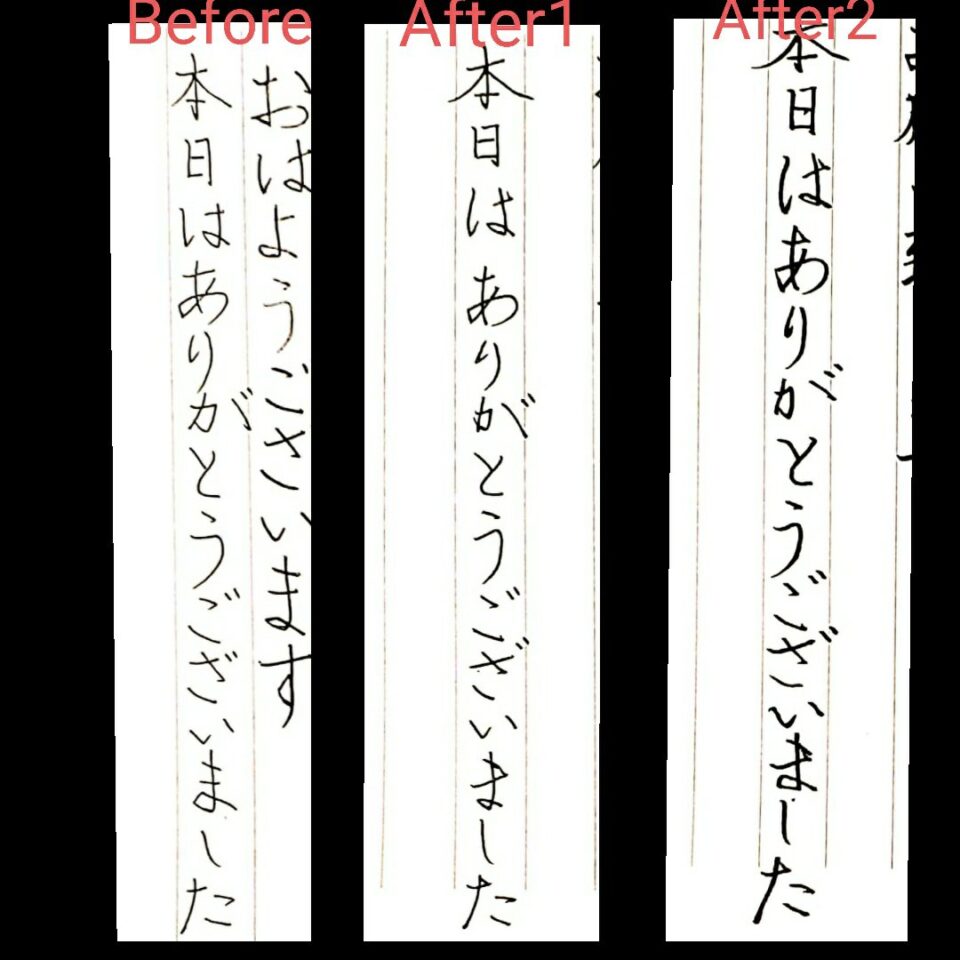 Before
おはようございます
本日はありがとうございました
After1
本日はありがとうございました
After2
本日はありがとうございました